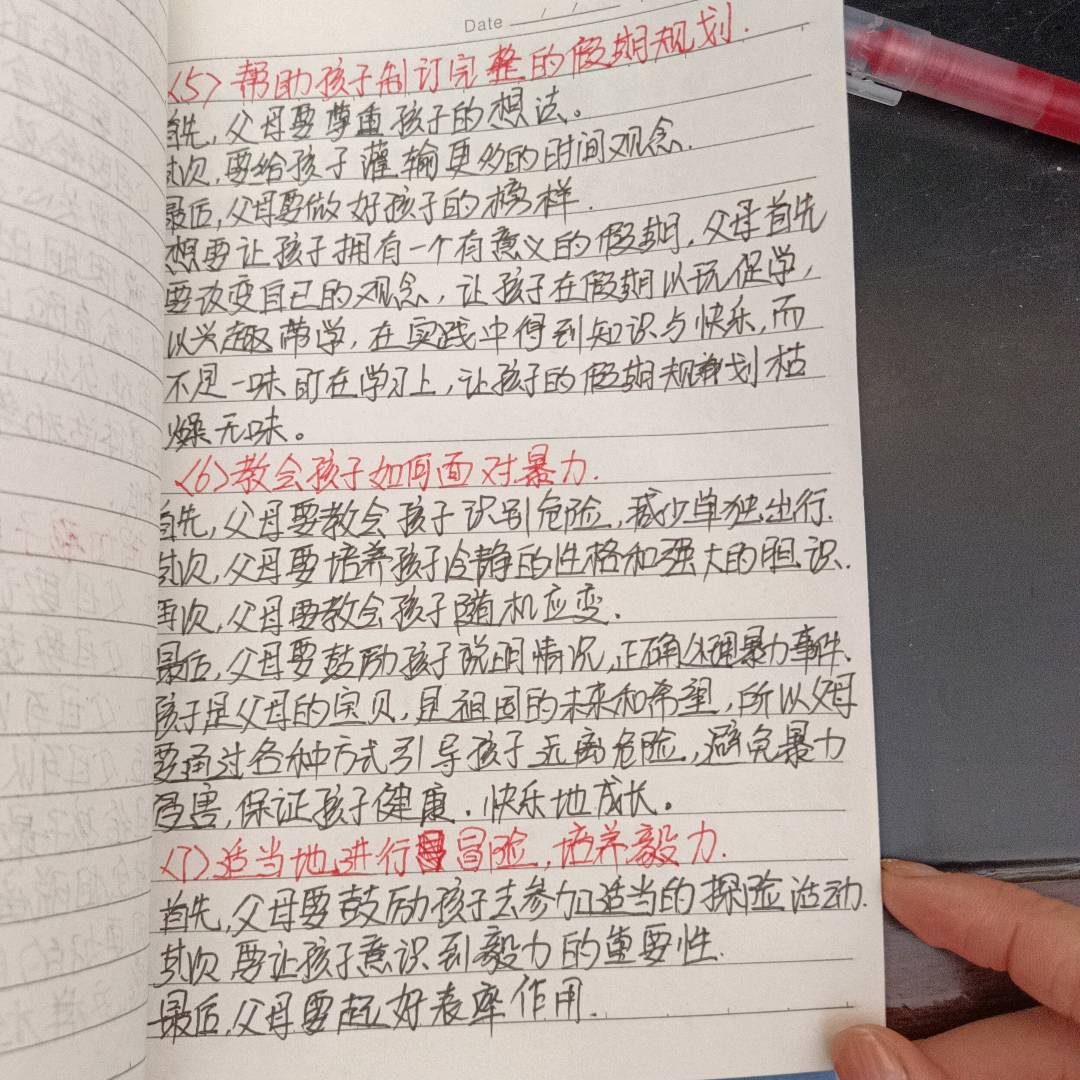 Date
<5>帮助孩子制订完整的假期规划.
首先,父母要尊重孩子的想法。
其次,要给孩子灌输更多的时间观念.
最后,父母要做好孩子的榜样.
想要让孩子拥有一个有意义的假期,父母首先
要改变自己的观念,让孩子在假期以玩促学,
以兴趣带学,在实践中得到知识与快乐,而
不是一味盯在学习上,让孩子的假期规划枯
燥无味。
<6>教会孩子如何面对暴力.
首先,父母要教会孩子识别危险,减少单独出行.
其次,父母要培养孩子冷静的性格和强大的胆识.
再次,父母要教会孩子随机应变.
最后,父母要鼓励孩子说明情况,正确处理暴力事件.
孩子是父母的宝贝,是祖国的未来和希望,所以父母
要通过各种方式引导孩子远离危险,避免暴力
侵害,保证孩子健康.快乐地成长。
<7>适当地进行冒险,培养毅力.
首先,父母要鼓励孩子去参加适当的探险活动.
其次要让孩子意识到毅力的重要性.
最后,父母要起好表率作用.